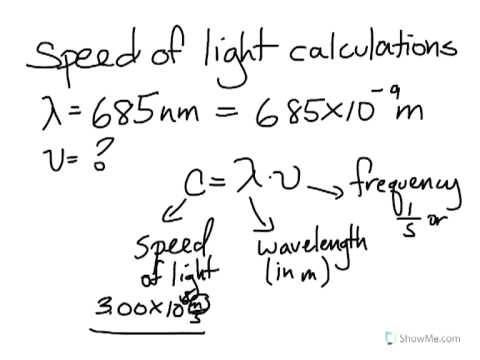 Speed of light calculations
λ = 685nm = 685×10⁻⁹ m
ν = ?
C = λ·ν → frequency
1/s or
speed of light
wavelength (in m)
3.00×10⁸ m/s
ShowMe.com